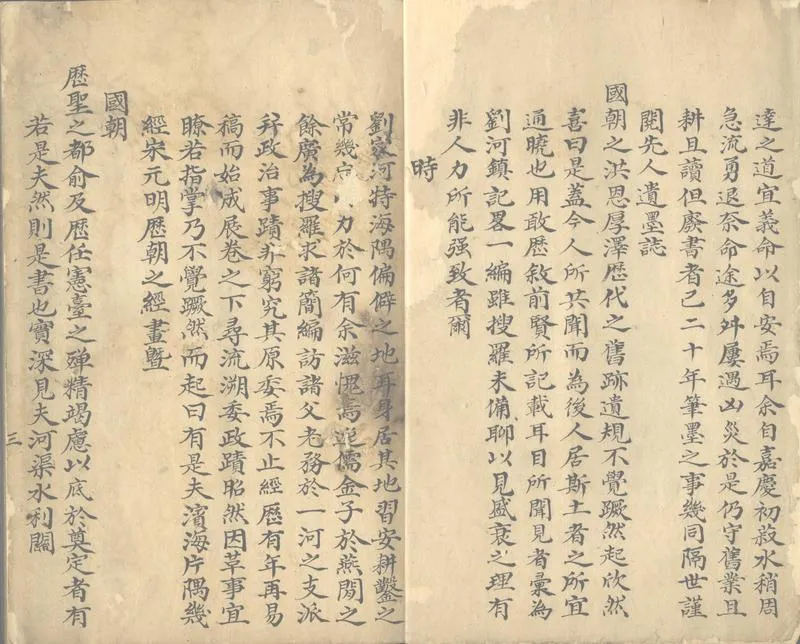 達之道宜義命以自安焉耳余自嘉慶初菽水稍周
急流勇退奈命途多舛屢遇凶災於是仍守舊業且
耕且讀但廢書者已二十年筆墨之事幾同隔世謹
閱先人遺墨誌
國朝之洪恩厚澤歷代之舊跡遺規不覺蹶然起欣然
喜曰是蓋今人所共聞而為後人居斯土者之所宜
通曉也用敢歷敘前賢所記載耳目所聞見者彙為
劉河鎮記畧一編雖搜羅未備聊以見盛衰之理有
非人力所能强致者爾
時
劉家河特海隅偏僻之地耳身居其地習安耕鑿之
常幾力於何有余滋愧焉迨儒金子於燕閒之
餘廣為搜羅求諸簡編訪諸父老務於一河之支派
并政治事蹟靡不窮究其原委焉不止經歷有年再易
稿而始成展卷之下尋流溯委政蹟昭然因革事宜
瞭若指掌乃不覺蹶然而起曰有是夫濱海片隅幾
經宋元明歷朝之經畫曁
國朝
歷聖之都俞及歷任憲臺之殫精竭慮以底於奠定者有
若是夫然則是書也實深見夫河渠水利關
三